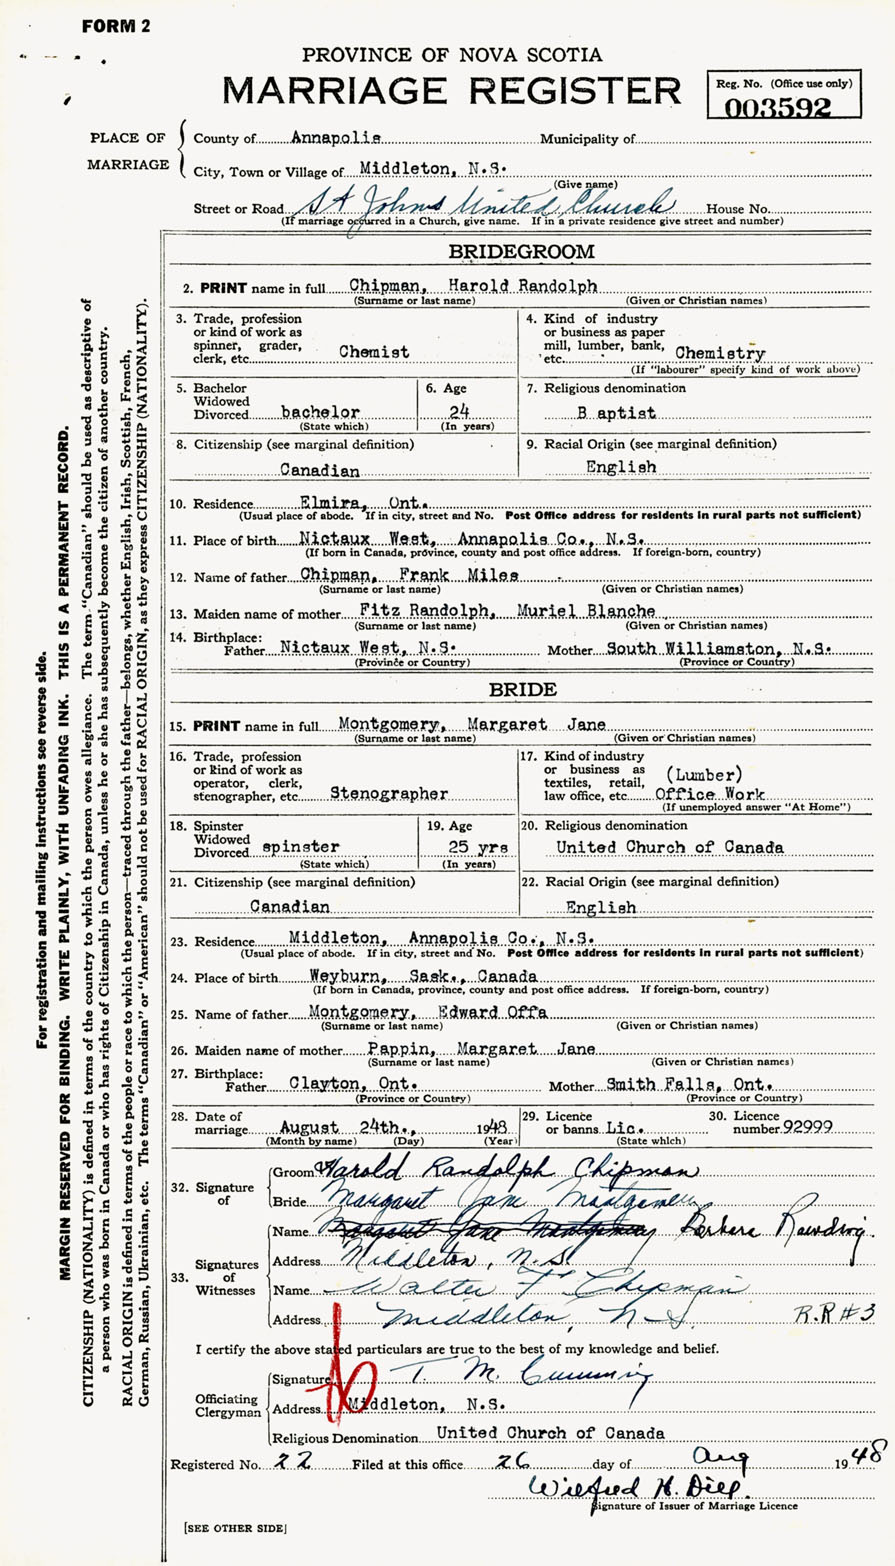 FORM 2
PROVINCE OF NOVA SCOTIA
MARRIAGE REGISTER
Reg. No. (Office use only)
003592
PLACE OF MARRIAGE
County of Annapolis Municipality of
City, Town or Village of Middleton, N.S.
(Give name)
Street or Road St Johns United Church House No.
(If marriage occurred in a Church, give name. If in a private residence give street and number)
BRIDEGROOM
2. PRINT name in full Chipman, Harold Randolph
(Surname or last name) (Given or Christian names)
3. Trade, profession
or kind of work as
spinner, grader,
clerk, etc. Chemist
4. Kind of industry
or business as paper
mill, lumber, bank,
etc. Chemistry
(If "labourer" specify kind of work above)
5. Bachelor
Widowed
Divorced bachelor
(State which)
6. Age
24
(In years)
7. Religious denomination
B aptist
8. Citizenship (see marginal definition)
Canadian
9. Racial Origin (see marginal definition)
English
10. Residence Elmira, Ont.
(Usual place of abode. If in city, street and No. Post Office address for residents in rural parts not sufficient)
11. Place of birth Nictaux West, Annapolis Co., N.S.
(If born in Canada, province, county and post office address. If foreign-born, country)
12. Name of father Chipman, Frank Miles
(Surname or last name) (Given or Christian names)
13. Maiden name of mother Fitz Randolph, Muriel Blanche
(Surname or last name) (Given or Christian names)
14. Birthplace:
Father Nictaux West, N.S. Mother South Williamston, N.S.
(Province or Country) (Province or Country)
BRIDE
15. PRINT name in full Montgomery, Margaret Jane
(Surname or last name) (Given or Christian names)
16. Trade, profession
or kind of work as
operator, clerk,
stenographer, etc. Stenographer
17. Kind of industry
or business as
textiles, retail, (Lumber)
law office, etc. Office Work
(If unemployed answer "At Home")
18. Spinster
Widowed
Divorced spinster
(State which)
19. Age
25 yrs
(In years)
20. Religious denomination
United Church of Canada
21. Citizenship (see marginal definition)
Canadian
22. Racial Origin (see marginal definition)
English
23. Residence Middleton, Annapolis Co., N.S.
(Usual place of abode. If in city, street and No. Post Office address for residents in rural parts not sufficient)
24. Place of birth Weyburn, Sask., Canada
(If born in Canada, province, county and post office address. If foreign-born, country)
25. Name of father Montgomery, Edward Offa
(Surname or last name) (Given or Christian names)
26. Maiden name of mother Pappin, Margaret Jane
(Surname or last name) (Given or Christian names)
27. Birthplace:
Father Clayton, Ont. Mother Smith Falls, Ont.
(Province or Country) (Province or Country)
28. Date of
marriage August 24th., 1948
(Month by name) (Day) (Year)
29. Licence
or banns Lic.
(State which)
30. Licence
number 92999
32. Signature of
Groom Harold Randolph Chipman
Bride Margaret Jane Montgomery
33. Signatures of Witnesses
Name Margaret Jane Montgomery Barbara Rawding.
Address Middleton, N.S.
Name Walter F Chipman
Address Middleton, N-S. R.R #3
I certify the above stated particulars are true to the best of my knowledge and belief.
Officiating Clergyman
Signature T. M. Cumming
Address Middleton, N.S.
Religious Denomination United Church of Canada
Registered No. 22 Filed at this office 26 day of Aug 1948
Wilfred H.
Signature of Issuer of Marriage Licence
[SEE OTHER SIDE]
For registration and mailing instructions see reverse side.
MARGIN RESERVED FOR BINDING. WRITE PLAINLY, WITH UNFADING INK. THIS IS A PERMANENT RECORD.
CITIZENSHIP (NATIONALITY) is defined in terms of the country to which the person owes allegiance. The term "Canadian" should be used as descriptive of
a person who was born in Canada or who has rights of Citizenship in Canada, unless he or she has subsequently become the citizen of another country.
RACIAL ORIGIN is defined in terms of the people or race to which the person—traced through the father—belongs, whether English, Irish, Scottish, French,
German, Russian, Ukrainian, etc. The terms "Canadian" or "American" should not be used for RACIAL ORIGIN, as they express CITIZENSHIP (NATIONALITY).